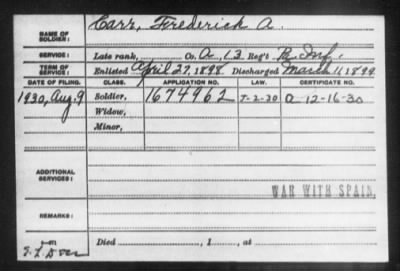 NAME OF SOLDIER: Carr, Frederick A.
SERVICE: Late rank, Co. A, 13 Reg't Pa Inf.
TERM OF SERVICE: Enlisted April 27, 1898 Discharged March 11, 1899
DATE OF FILING. CLASS. APPLICATION NO. LAW. CERTIFICATE NO.
1930, Aug. 9 Soldier, 1674962 J-2-30 12-16-30
Widow,
Minor,
ADDITIONAL SERVICES:
WAR WITH SPAIN.
REMARKS:
Died , 1 , at